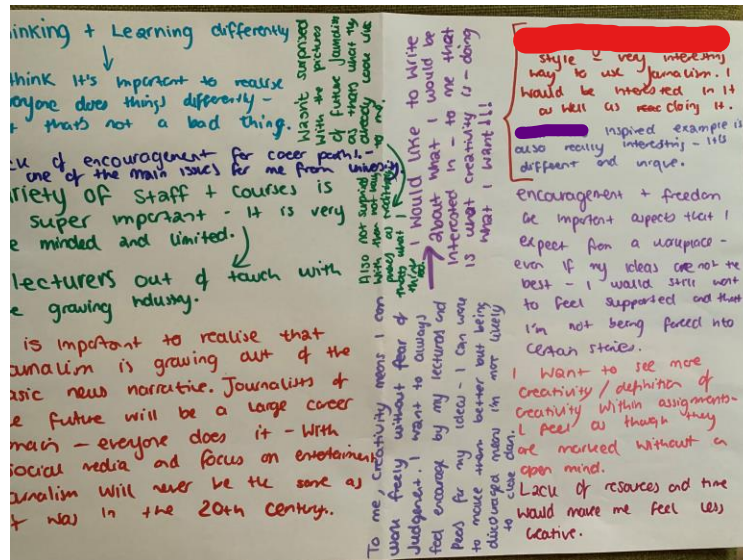 inking + Learning differently
think It's important to realise
eryone does things differently -
t thats not a bad thing.
ck of encouragement for career paths! -
one of the main issues for me from university.
riety of staff + courses is
super important - it is very
e minded and limited.
lecturers out of touch with
e growing industry.
is important to realise that
urnalism is growing out of the
asic news narrative. Journalists of
e future will be a large career
main - everyone does it - with
social media and focus on entertainment
urnalism will never be the same as
t was in the 20th century.
Wasn't surprised
with the pictures
of future journalism
as thats what they
already look like
to me.
Also not surprised
with them not having
papers as
thats what I
think too.
I would like to write
about what I would be
interested in - to me that
is what creativity is - doing
what I want!!!
To me, creativity means I can
work freely without fear of
judgement. I want to always
feel encourage by my lecturers and
peers for my ideas - I can work
to make them better but being
discouraged means im more likely
to close down.
style = very interesting
way to use journalism. I
would be interested in it
as well as doing it.
inspired example is
also really interesting - its
different and unique.
encouragement + freedom
are important aspects that I
expect from a workplace -
even if my ideas are not the
best - I would still want
to feel supported and that
I'm not being forced into
certain stories.
I want to see more
creativity / definition of
creativity within assignments -
I feel as though they
are marked without an
open mind.
Lack of resources and time
would make me feel less
creative.